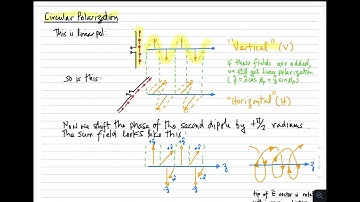 Circular Polarization
This is linear pol:
"Vertical" (V)
if these fields are added,
we still get linear polarization
so is this:
"Horizontal" (H)
Now we shift the phase of the second dipole by +π/2 radians.
The sum field looks like this:
tip of E vector is